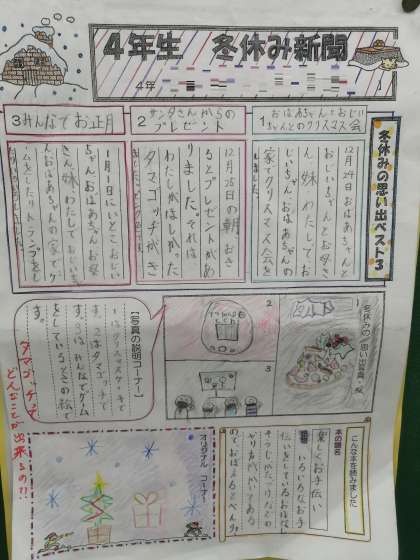 4年生 冬休み新聞
4年
冬休みの思い出ベスト3
1おばあちゃんとおじいちゃんとのクリスマス会
12月24日おばあちゃんと
おじいちゃんとお母さ
ん、妹、わたしでお
じいちゃん、おばあちゃんの
家でクリスマス会を
しました。
2サンタさんからの
プレゼント
12月25日の朝、おき
るとプレゼントがあ
りました。それは
わたしがほしかった
タマゴッチがき
3みんなでお正月
1月1日にいとこ、おじい
ちゃん、おばあちゃん、お母
さん、妹、わたしでおじいち
ゃん、おばあちゃんの家でゲー
ムをしたりトランプをし
冬休みの思い出写真
1
2
3
【写真の説明コーナー】
1はクリスマスケーキで
す。2はタマゴッチで
す。3はみんなでゲーム
をしているときの絵で
す。
タマゴッチって
どんなことが出来るの!?
こんな本を読みました
本の題名
楽しくお手伝い
いろいろなお手
伝いをしているおはなし
オリジナル コーナー